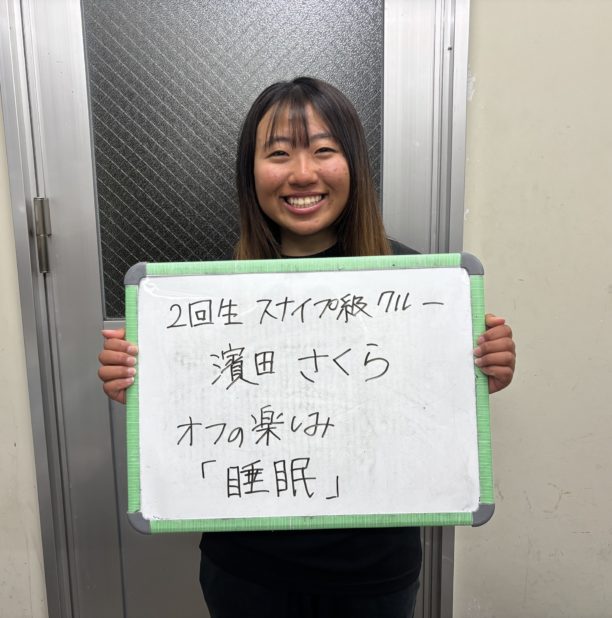 2回生 スナイプ級 クルー
濱田 さくら
オフの楽しみ
「睡眠」